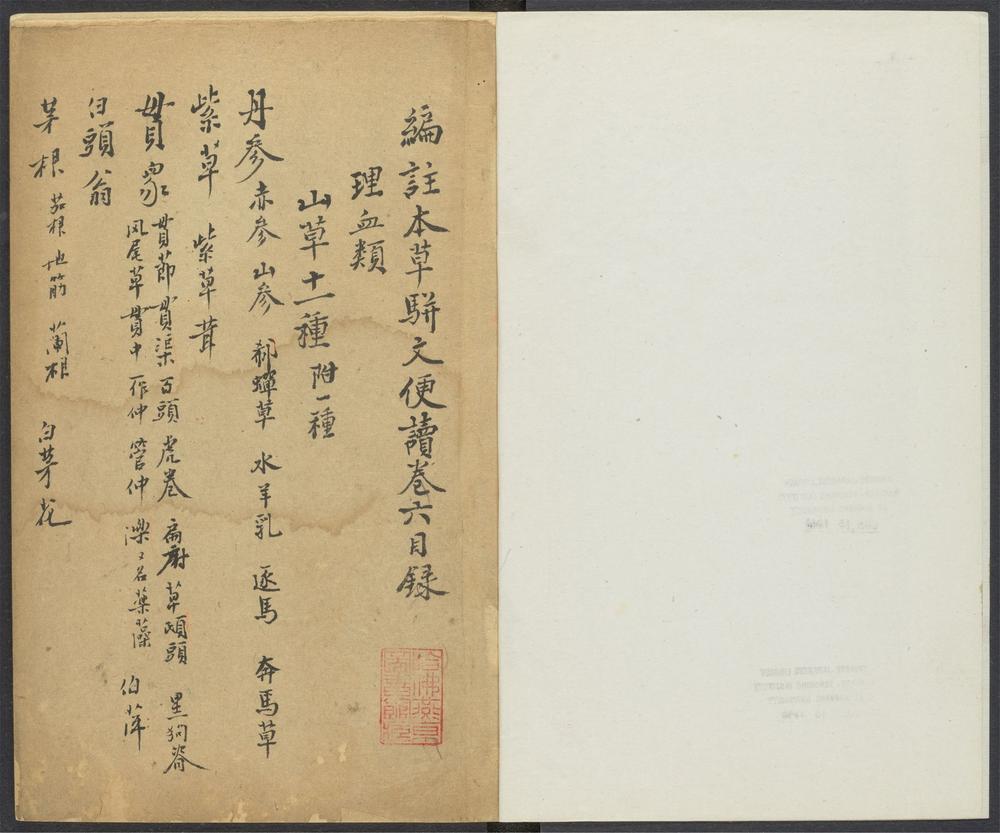 編註本草駢文便讀卷六目録
理血類
山草十一種 附一種
丹參 赤參 山參 郝蟬草 水羊乳 逐馬 奔馬草
紫草 紫草茸
貫衆 貫節 貫渠 百頭 虎卷 扁府 草頭 黒狗脊
鳳尾草 貫中 一作仲 管仲 濼 名藥藻 伯萍
白頭翁
茅根 茹根 地筋 蘭根 白茅花
哈佛燕京圖書館